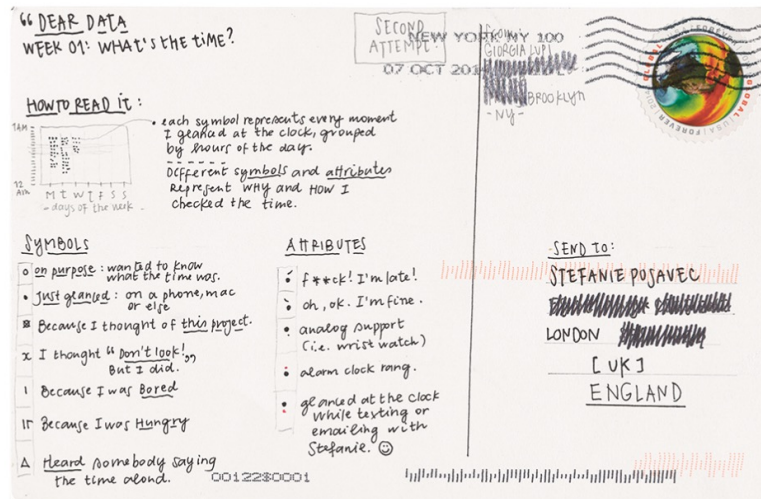 “ DEAR DATA
WEEK 01: WHAT'S the TIME?
SECOND
ATTEMPT!
NEW YORK NY 100
07 OCT 201
FROM:
GIORGIA LUPI
BROOKLYN
- NY -
GLOBAL
USA
FOREVER
HOW TO READ IT:
1AM
12
AM
M t W t f S S
- days of the week -
• each symbol represents every moment
I glanced at the clock, grouped
by hours of the day.
Different symbols and attributes
Represent WHY and HOW I
checked the time.
SYMBOLS
on purpose: wanted to know
what the time was.
Just glanced: on a phone, mac
or else
Because I thought of this project.
I thought “Don't look!”
But I did.
Because I was Bored
Because I was Hungry
Heard somebody saying
the time aloud.
ATTRIBUTES
f**ck! I'm late!
oh, ok. I'm fine.
analog support
(i.e. wrist watch)
alarm clock rang.
glanced at the clock
while texting or
emailing with
Stefanie. ☺
SEND TO:
STEFANIE POSAVEC
LONDON
[UK]
ENGLAND
00122$0001